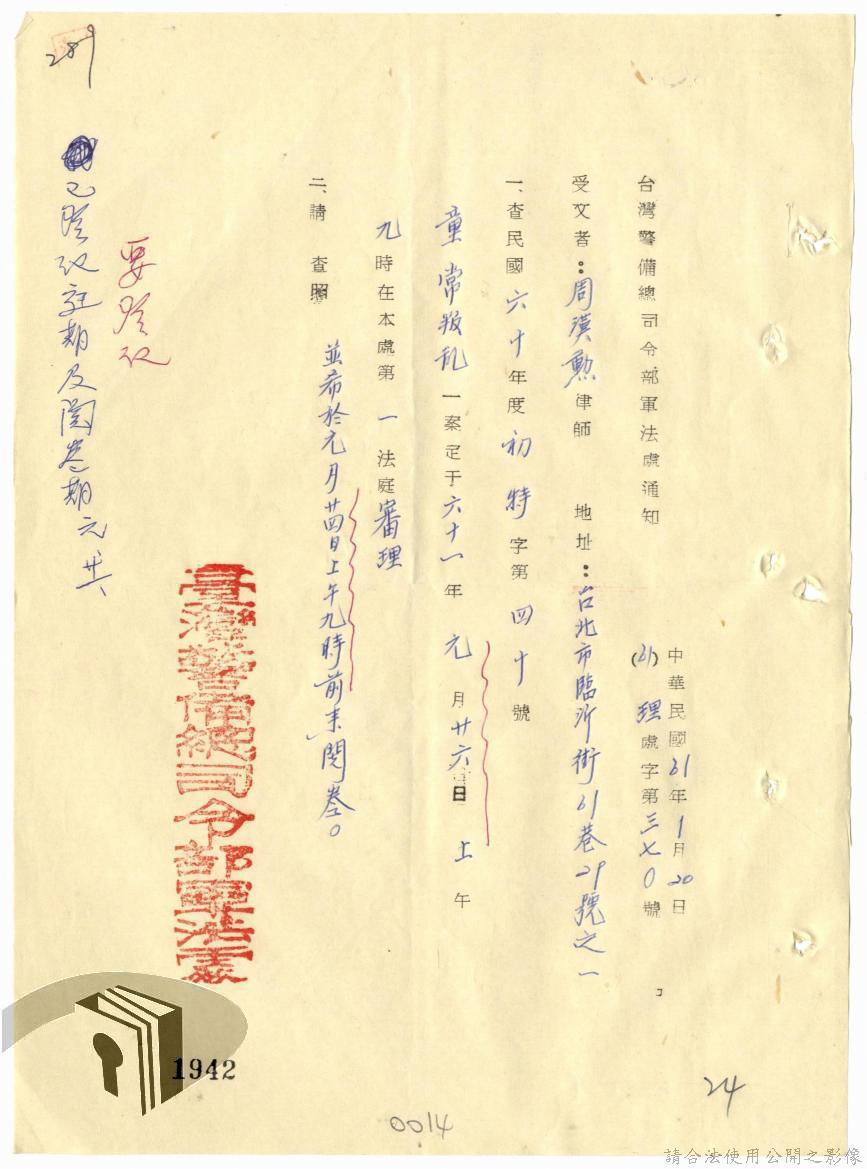 台灣警備總司令部軍法處通知
中華民國61年1月20日
(61)理處字第三七0號
受文者：周漢勲律師　地址：台北市臨沂街61巷29號之一
一、查民國六十年度初特字第四十號
童常叛乱一案定于六十一年元月廿六日上午
九時在本處第一法庭審理
二、請查照
並希於元月廿四日上午九時前來閱卷。
要登記
已登記庭期及閱卷期元廿六
臺灣警備總司令部軍法處
289
1942
24
0014
請合法使用公開之影像